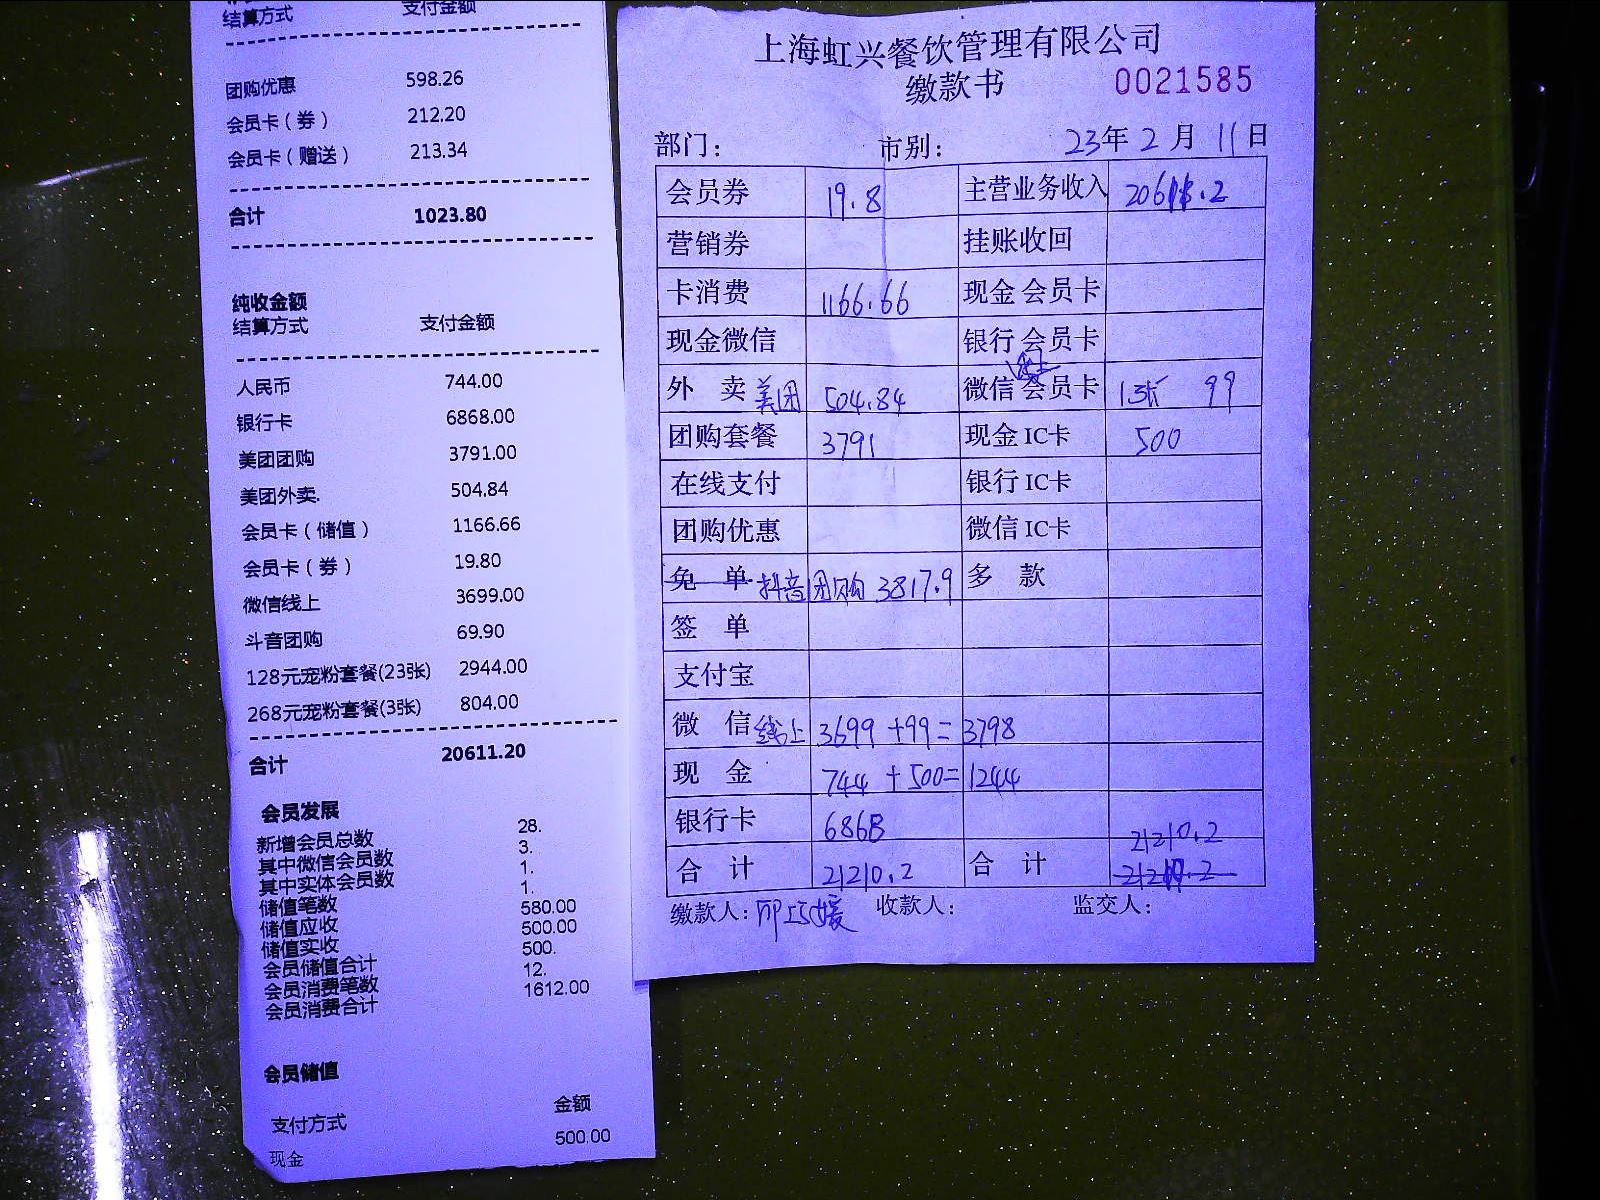 结算方式 支付金额
团购优惠 598.26
会员卡（券） 212.20
会员卡（赠送） 213.34
合计 1023.80
纯收金额
结算方式 支付金额
人民币 744.00
银行卡 6868.00
美团团购 3791.00
美团外卖. 504.84
会员卡（储值） 1166.66
会员卡（券） 19.80
微信线上 3699.00
斗音团购 69.90
128元宠粉套餐(23张) 2944.00
268元宠粉套餐(3张) 804.00
合计 20611.20
会员发展
新增会员总数 28.
其中微信会员数 3.
其中实体会员数 1.
储值笔数 1.
储值应收 580.00
储值实收 500.00
会员储值合计 500.
会员消费笔数 12.
会员消费合计 1612.00
会员储值
支付方式 金额
现金 500.00
上海虹兴餐饮管理有限公司
缴款书 0021585
部门： 市别： 23年 2 月 11日
会员券 19.8 主营业务收入 20611.2
营销券 挂账收回
卡消费 1166.66 现金 会员卡
现金微信 银行 会员卡
外 卖 美团 504.84 微信 会员卡 1张 99
团购套餐 3791 现金 IC卡 500
在线支付 银行 IC卡
团购优惠 微信 IC卡
免 单 抖音团购 3817.9 多 款
签 单
支付宝
微 信 线上 3699 +99= 3798
现 金 744 +500= 1244
银行卡 6868
21210.2
合 计 21210.2 合 计
缴款人： 收款人： 监交人：